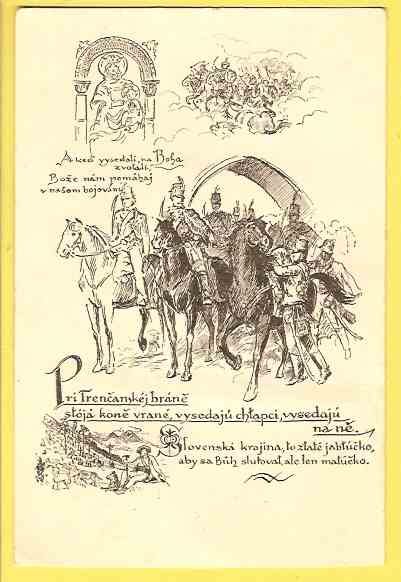 A keď vysedali, na Boha
zvolali,
Bože nám pomáhaj
v našom bojovaňú.
Pri Trenčanskéj bráně
stójá koně vrané, vysedajú chłapci, vysedajú
na ně.
Slovenská krajina, to zlaté jabłúčko,
aby sa Bůh slutovał, ale len małúčko.